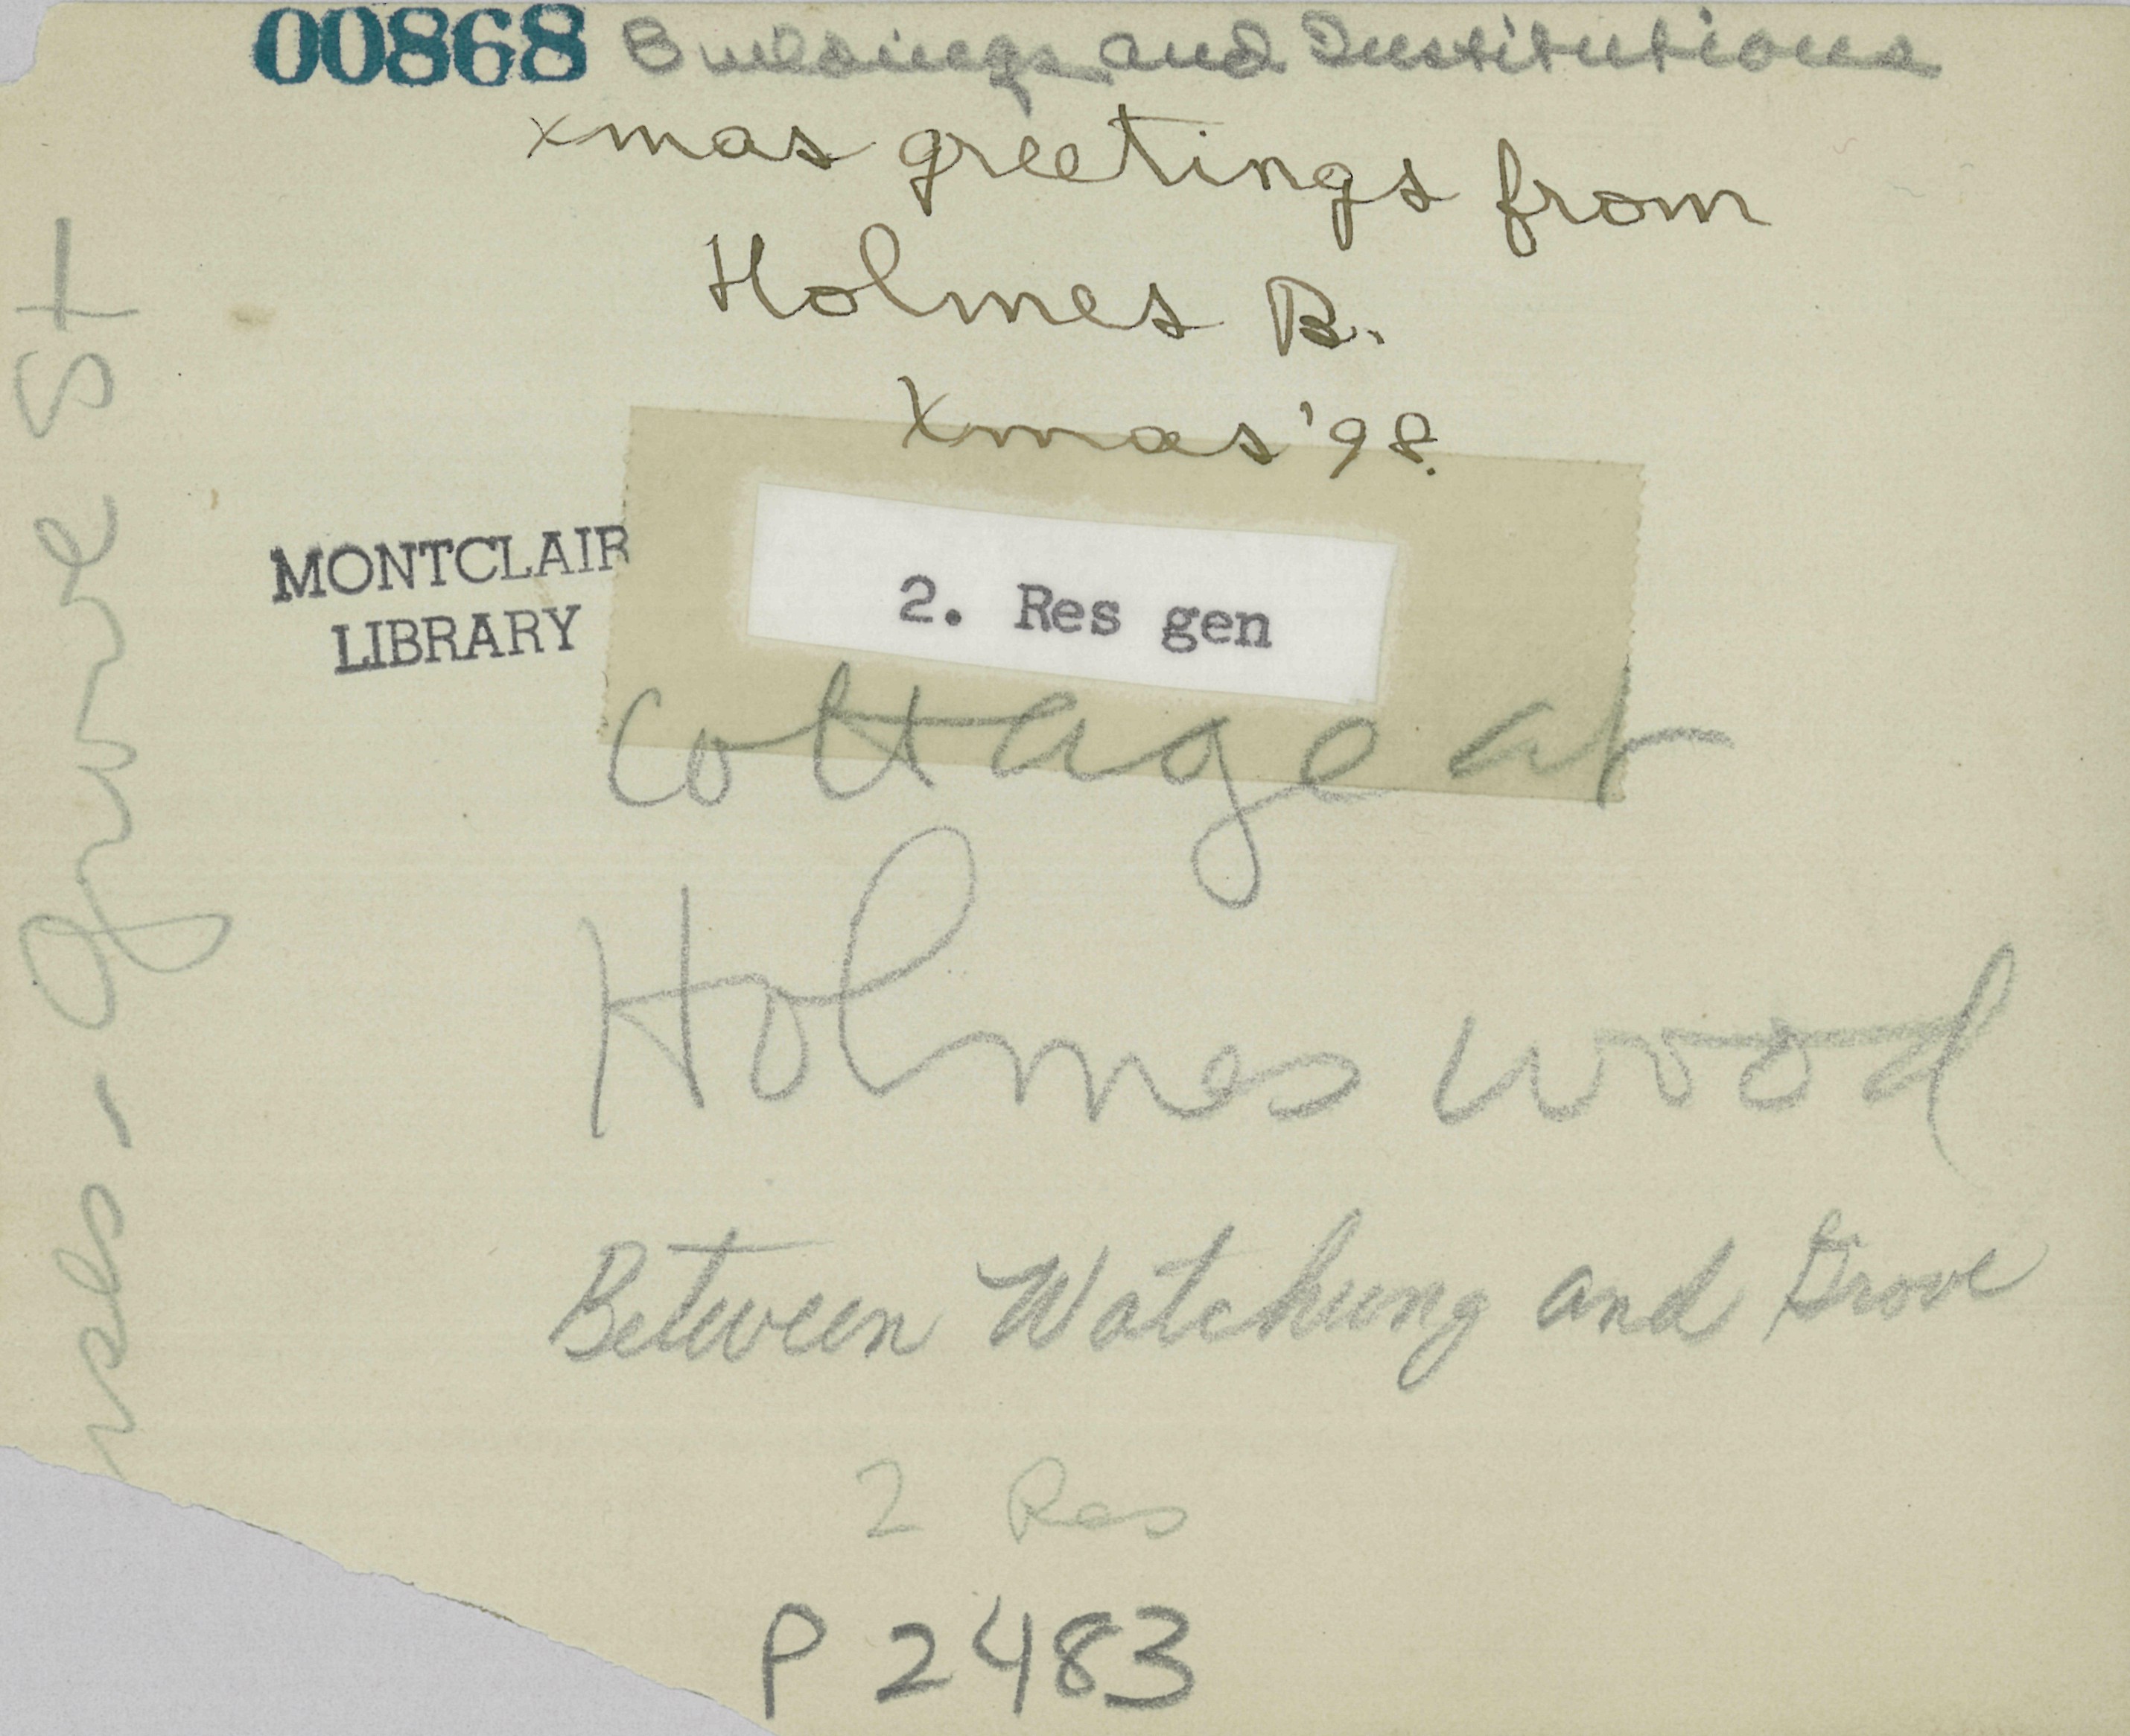 00868 Buildings and Institutions
xmas greetings from
Holmes B.
Xmas '98.
MONTCLAIR
LIBRARY
2. Res gen
Cottage at
Holmeswood
Between Watchung and Grove
2 Res
P 2483
Grove St